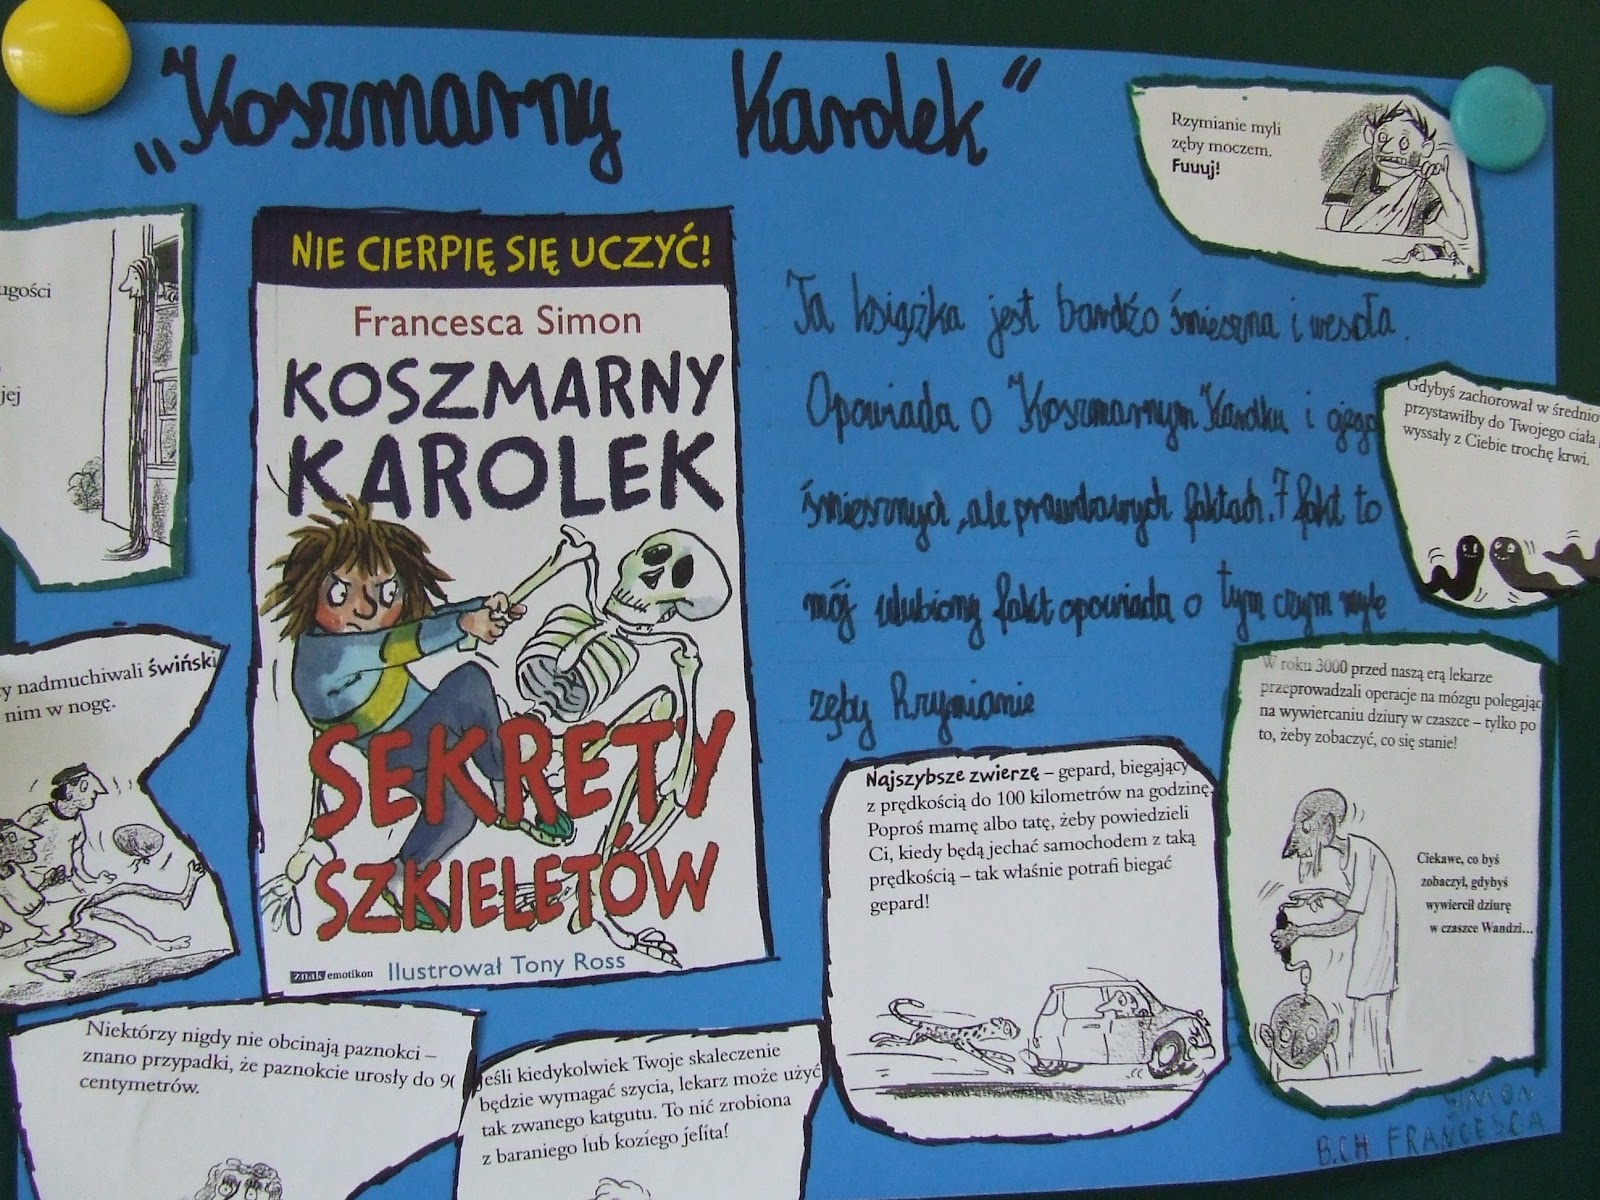 „Koszmarny Karolek"
Rzymianie myli
zęby moczem.
Fuuuj!
ugości
jej
NIE CIERPIĘ SIĘ UCZYĆ!
Francesca Simon
KOSZMARNY
KAROLEK
SEKRETY
SZKIELETÓW
znak emotikon Ilustrował Tony Ross
Ta książka jest bardzo śmieszna i wesoła.
Opowiada o Koszmarnym Karolku i
śmiesznych, ale prawdziwych faktach. fakt to
mój ulubiony fakt opowiada o tym czym myłe
zęby Rzymianie
Gdybyś zachorował w średnio
przystawiłby do Twojego ciała
wyssały z Ciebie trochę krwi.
y nadmuchiwali świński
nim w nogę.
W roku 3000 przed naszą erą lekarze
przeprowadzali operacje na mózgu polegając
na wywiercaniu dziury w czaszce – tylko po
to, żeby zobaczyć, co się stanie!
Ciekawe, co byś
zobaczył, gdybyś
wywiercił dziurę
w czaszce Wandzi...
Najszybsze zwierzę – gepard, biegający
z prędkością do 100 kilometrów na godzinę.
Poproś mamę albo tatę, żeby powiedzieli
Ci, kiedy będą jechać samochodem z taką
prędkością – tak właśnie potrafi biegać
gepard!
Niektórzy nigdy nie obcinają paznokci –
znano przypadki, że paznokcie urosły do 90
centymetrów.
Jeśli kiedykolwiek Twoje skaleczenie
będzie wymagać szycia, lekarz może użyć
tak zwanego katgutu. To nić zrobiona
z baraniego lub koziego jelita!
SIMON
B.CH FRANCESCA